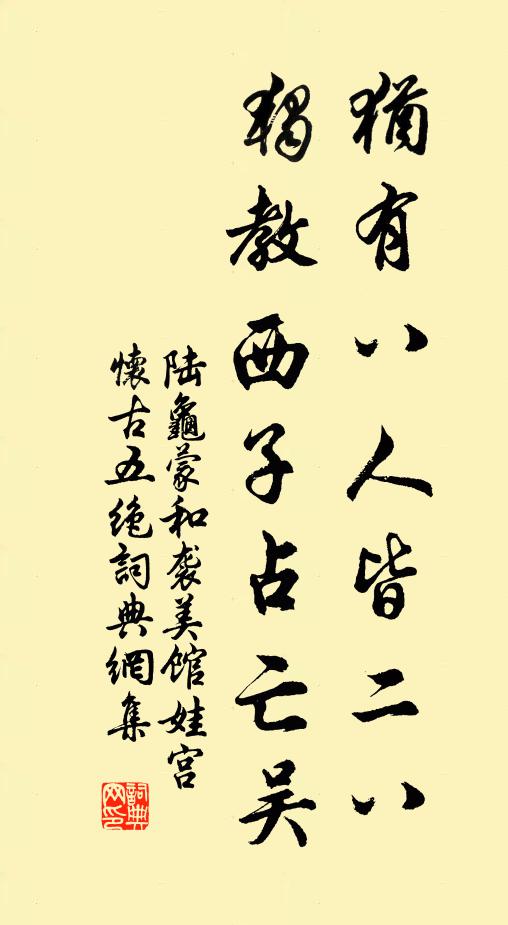 猶有八人皆二八
獨教西子占亡吴
陆龜蒙和袭美馆娃宫
懷古五绝詞典網集
詞典网印